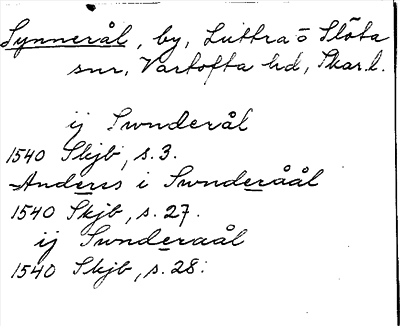 Synnerål, by, Luttra o Slöta
snr, Vartofta hd, Skar.l.
ij Swnderål
1540 Skjb, s. 3.
Anders i Swnderåål
1540 Skjb, s. 27.
ij Swnderaål
1540 Skjb, s. 28.